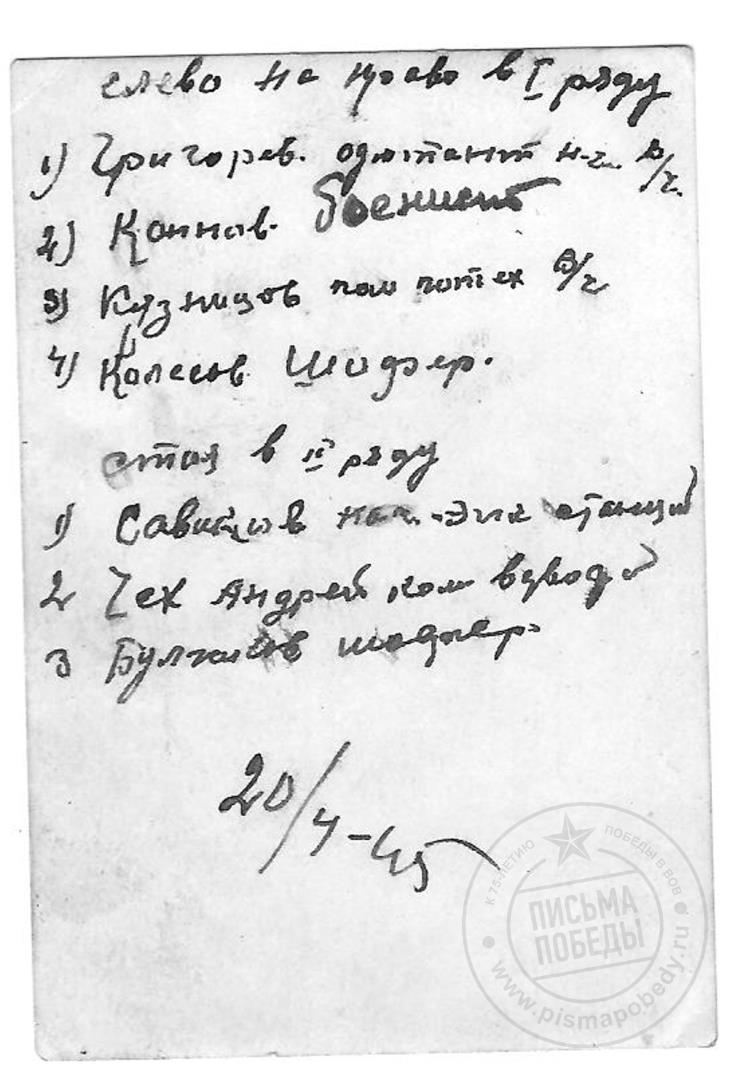 слево на право в I ряду
1) Григорев. одютант н-г. в/г.
2) Коннов. Военист
3) Кузницов пом потех в/г
4) Колесов Шофер.
стоя в II ряду
1) нач. эл. станций
2 Чех Андрей ком взвода
3 Булгаков шофер.
20/4-45
К 75-ЛЕТИЮ ПОБЕДЫ В ВОВ
ПИСЬМА
ПОБЕДЫ
www.pismapobedy.ru